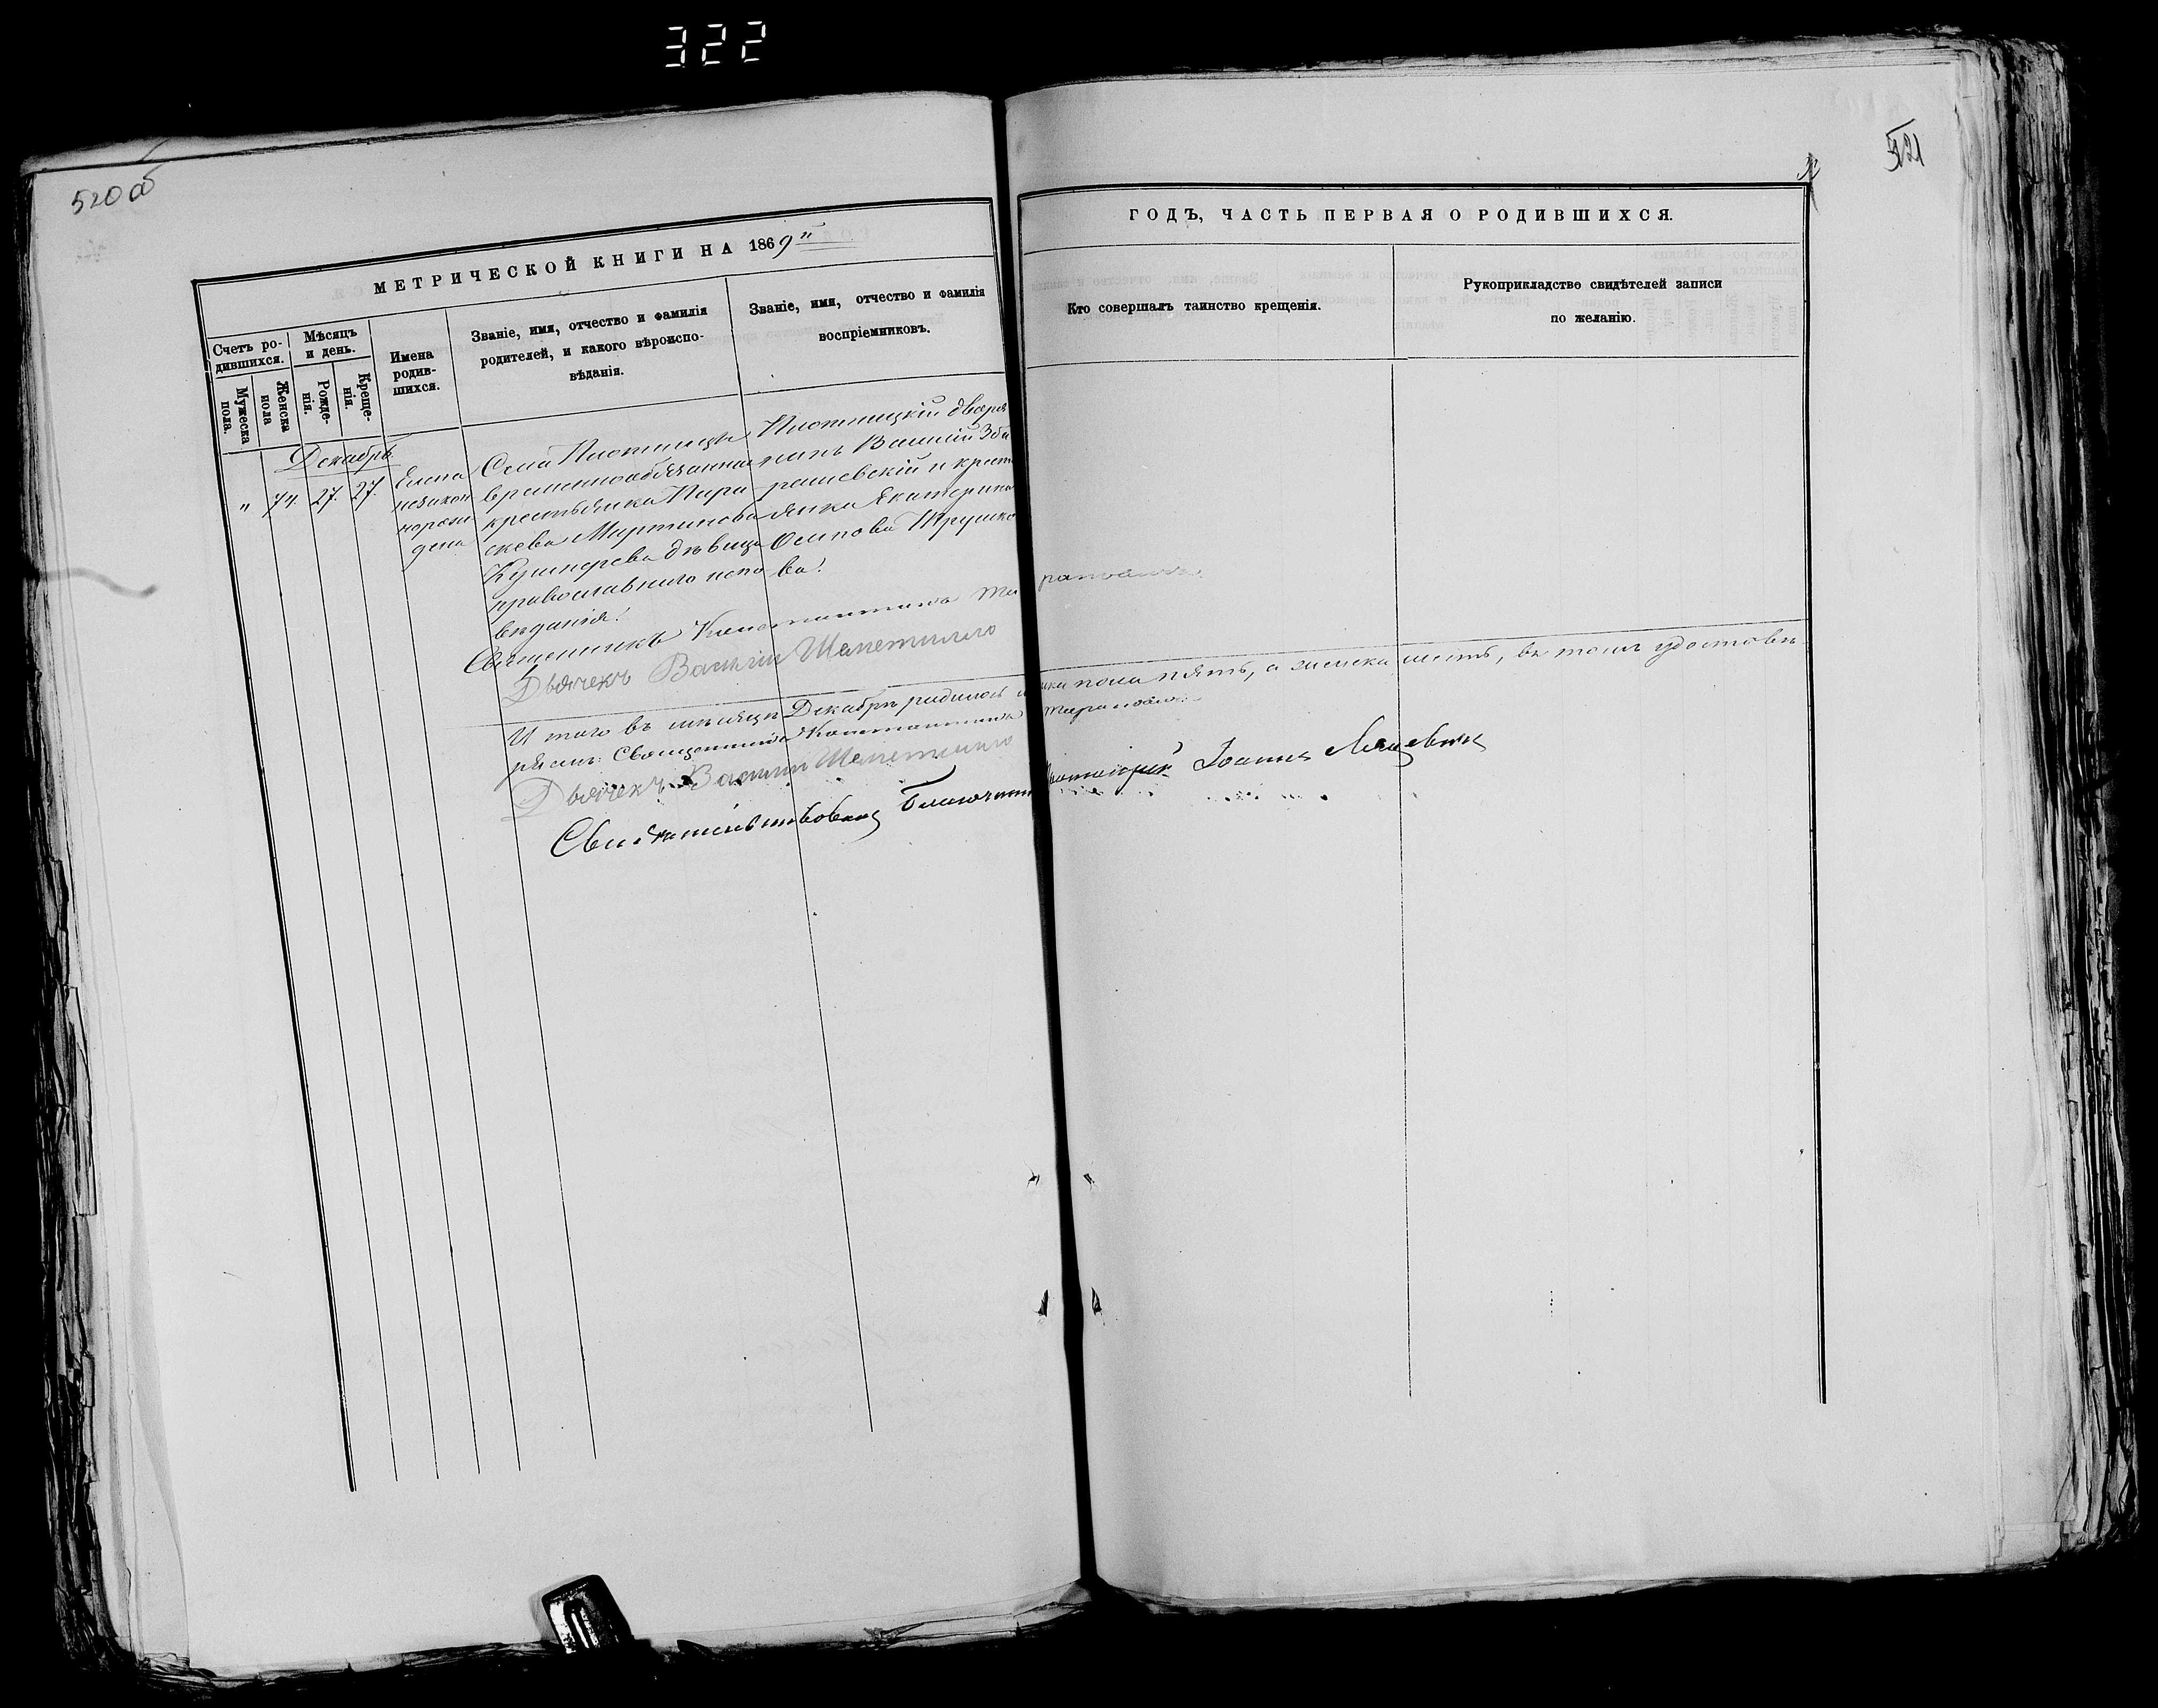 322
520 об
521
МЕТРИЧЕСКОЙ КНИГИ НА 1869й
ГОДЪ, ЧАСТЬ ПЕРВАЯ О РОДИВШИХСЯ.
Счетъ ро-
дившихся.
Мужеска
пола.
Женска
пола
Мѣсяцъ
и день.
Рожде-
нія.
Креще-
нія.
Имена
родив-
шихся.
Званіе, имя, отчество и фамилія
родителей, и какого вѣроиспо-
вѣданія.
Званіе, имя, отчество и фамилія
воспріемниковъ.
Кто совершалъ таинство крещенія.
Рукоприкладство свидѣтелей записи
по желанію.
Декабрь
" 74. 27. 27.
Елена
незакон
норож
дена
Села Плотницы
временнообязанная
крестьянка Пара-
скева Мартинова
Кушнерева дѣвица
православнаго испо
вѣданія.
Плотницкій дворя
нинъ Василій Зба
рашевскій и крест
янка Екатерина
Осипова Трушко
ва.
Священникъ Константинъ
Дьячекъ Василій Шеметилло
И того въ мѣсяцѣ Декабрѣ родилось мужска пола пять, а женска шесть, въ томъ удостовѣ
ряемъ: Священникъ Константинъ
Дьячекъ Василій Шеметилло
Свидѣтельствовалъ Благочинный Іоаннъ